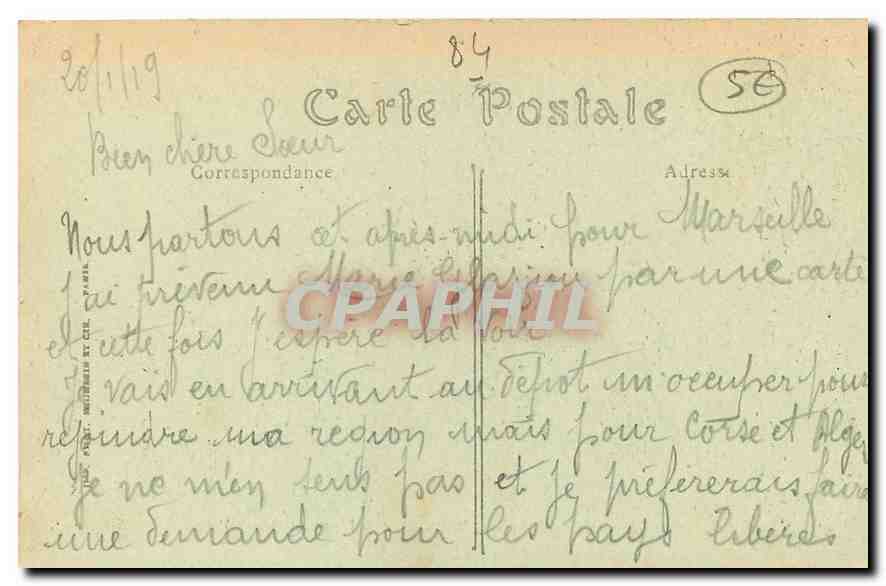 84
20/1/19
5€
Carte Postale
Bien chère Sœur
Correspondance
Adresse
Nous partons cet après-midi pour Marseille
J'ai prévenu Marie par une carte
CPAPHIL
et cette fois j'espère la voir
Je vais en arrivant au dépôt m'occuper pour
rejoindre ma region mais pour Corse et Alger
je ne m'en sens pas et je préfererais faire
une demande pour les pays libérés
PARIS